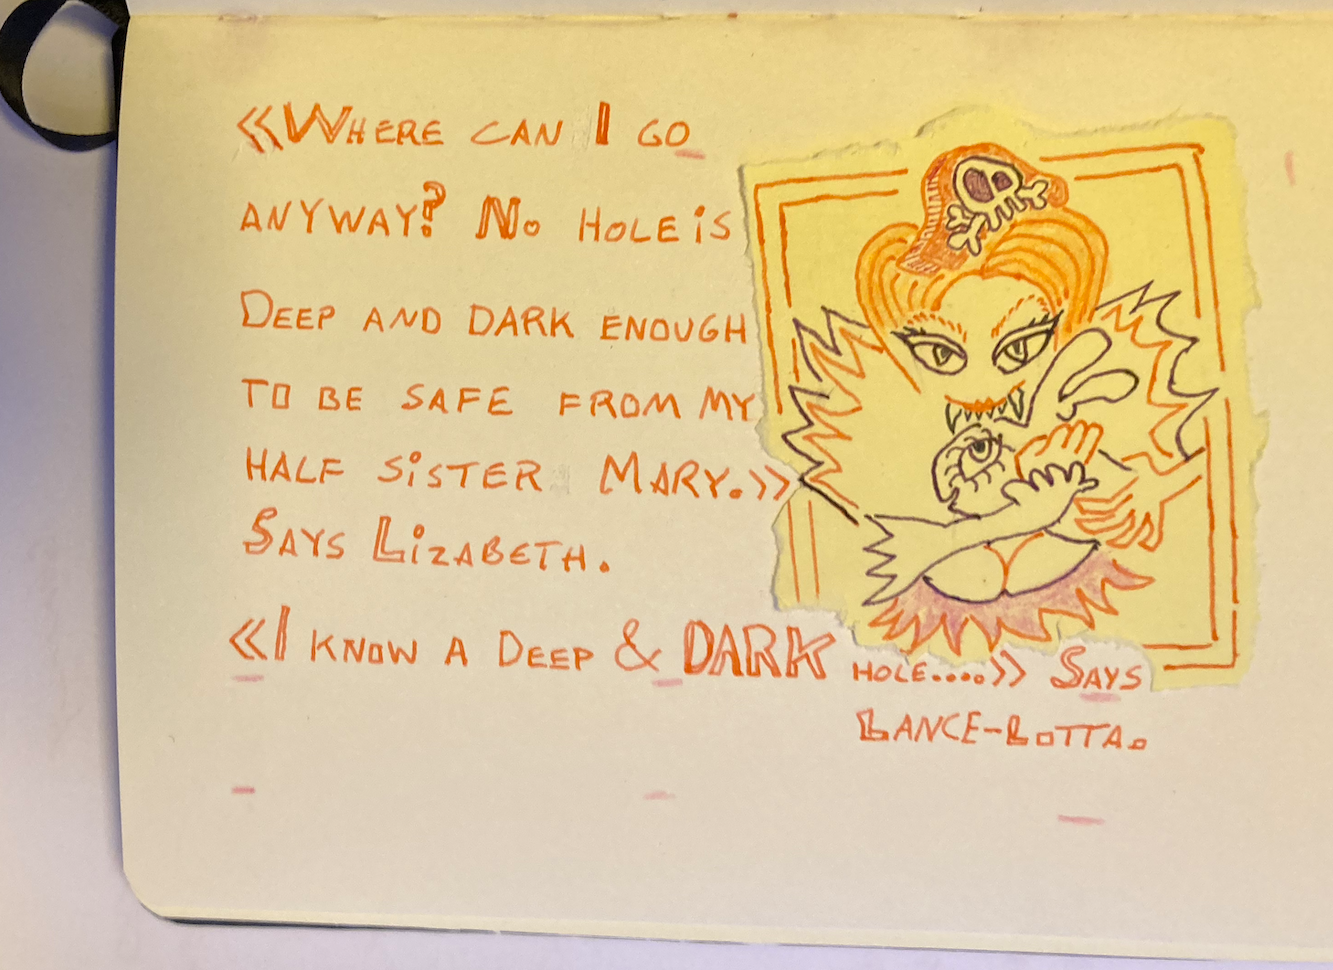 «Where can I go
anyway? No hole is
Deep and dark enough
to be safe from my
half sister Mary.»
Says Lizabeth.
«I know a Deep & DARK hole....» Says
Lance-Lotta.